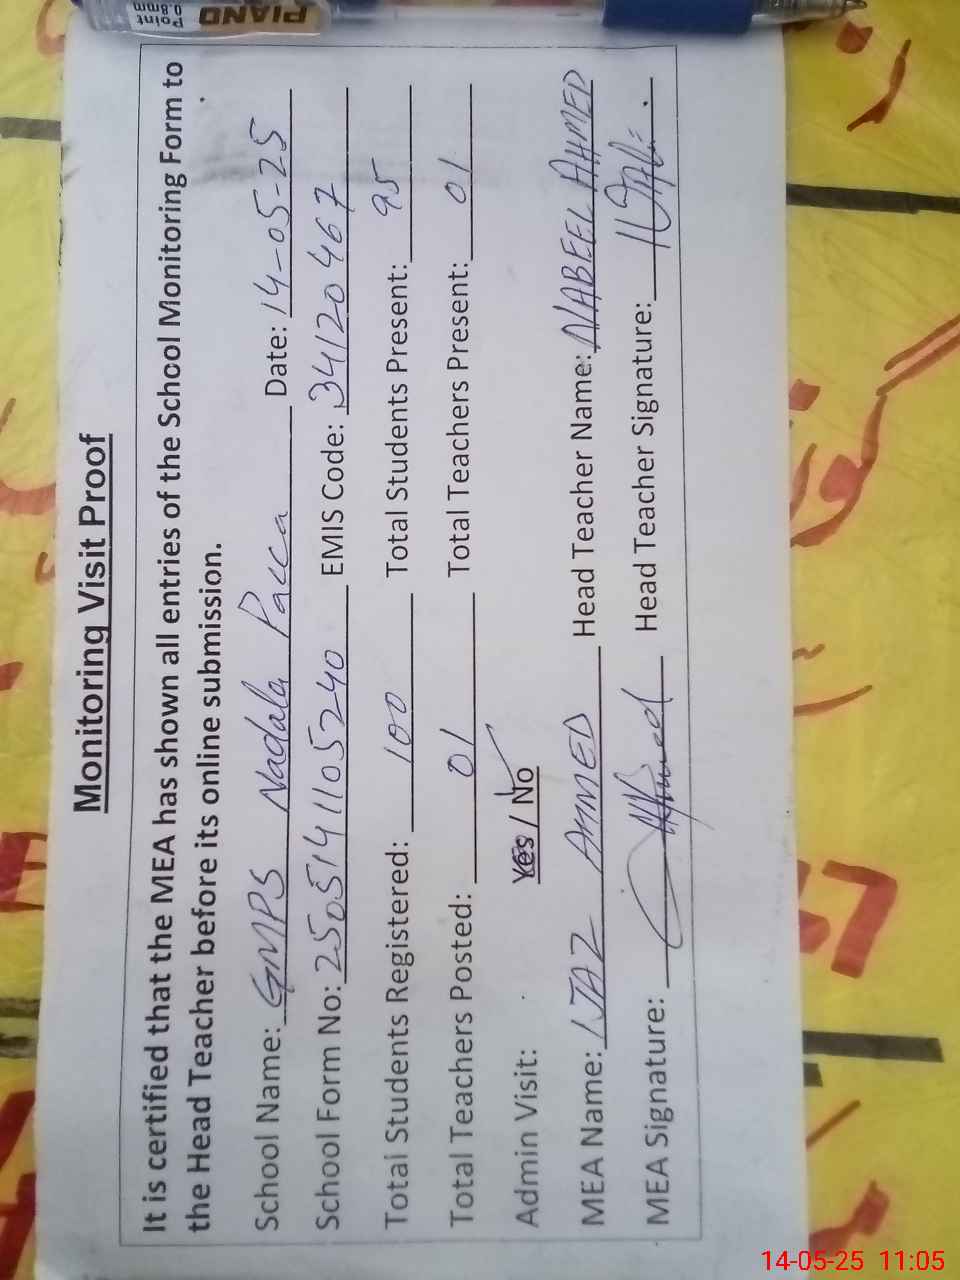 Monitoring Visit Proof
It is certified that the MEA has shown all entries of the School Monitoring Form to
the Head Teacher before its online submission.
School Name: GMPS Nadala Pacca Date: 14-05-25
School Form No: 2505141105240 EMIS Code: 34120467
Total Students Registered: 100 Total Students Present: 95
Total Teachers Posted: 01 Total Teachers Present: 01
Admin Visit: Yes / No
MEA Name: IJAZ AHMED Head Teacher Name: NABEEL AHMED
MEA Signature: Head Teacher Signature:
PIANO
Point
0.8mm
14-05-25 11:05